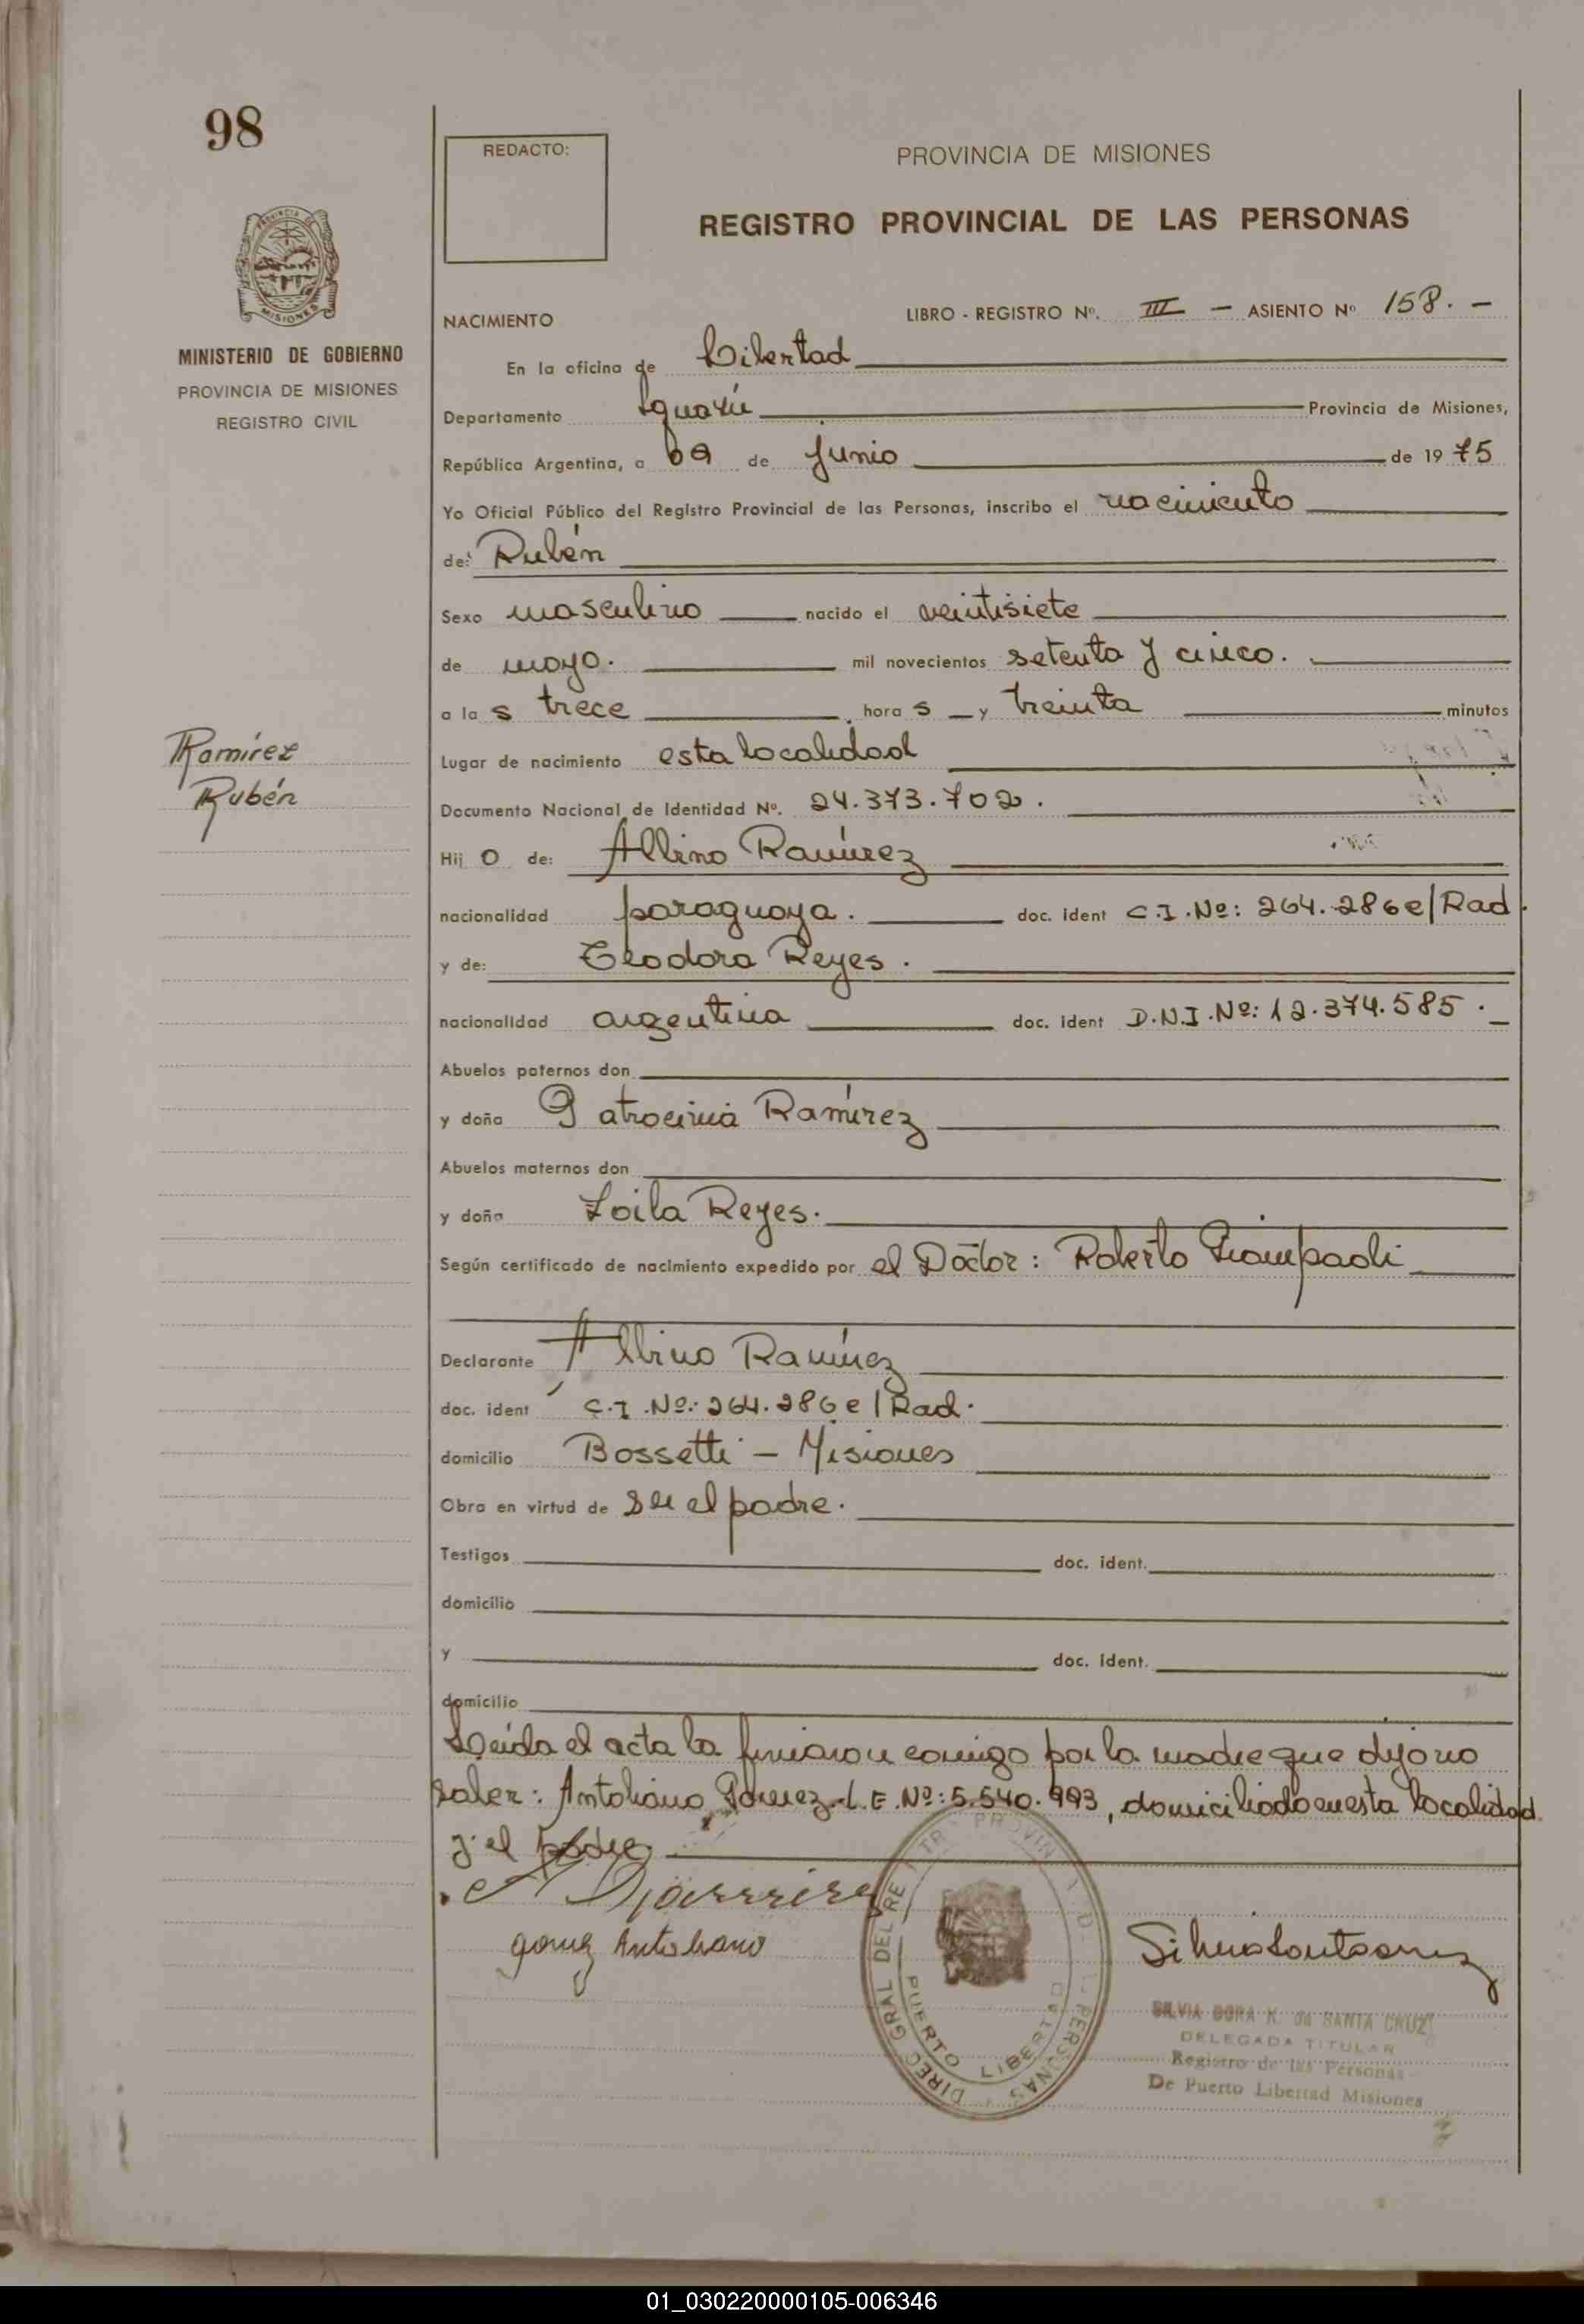 98
REDACTO:
PROVINCIA DE MISIONES
REGISTRO PROVINCIAL DE LAS PERSONAS
MISIONES
MINISTERIO DE GOBIERNO
PROVINCIA DE MISIONES
REGISTRO CIVIL
NACIMIENTO
LIBRO - REGISTRO Nº. III — ASIENTO Nº 158. —
En la oficina de Libertad
Departamento Iguazú Provincia de Misiones,
República Argentina, a 09 de Junio de 1975
Yo Oficial Público del Registro Provincial de las Personas, inscribo el nacimiento
de: Rubén
Sexo masculino nacido el veintisiete
de mayo. mil novecientos setenta y cinco.
a las trece horas y treinta minutos
Ramírez
Rubén
Lugar de nacimiento esta localidad
Documento Nacional de Identidad Nº. 24.373.702.
Hijo de: Albino Ramírez
nacionalidad paraguaya. doc. ident C.I.Nº: 264.286 e/Rad.
y de: Teodora Reyes.
nacionalidad argentina doc. ident D.N.I.Nº: 12.374.585.
Abuelos paternos don
y doña Patrocinia Ramírez
Abuelos maternos don
y doña Zoila Reyes.
Según certificado de nacimiento expedido por el Doctor: Roberto Giampaoli
Declarante Albino Ramírez
doc. ident C.I.Nº: 264.286 e/Rad.
domicilio Bossetti - Misiones
Obra en virtud de ser el padre.
Testigos doc. ident.
domicilio
y doc. ident.
domicilio
Leida el acta la firmaron conmigo por la madre que dijo no
saber: Antoliano Gomez L.E.Nº: 5.540.993, domiciliado en esta localidad
y el padre.
gomez Antoliano
DIREC GRAL DEL REGISTRO PROVINCIAL DE LAS PERSONAS
PUERTO LIBERTAD
SILVIA DORA K. de SANTA CRUZ
DELEGADA TITULAR
Registro de las Personas
De Puerto Libertad Misiones
01_030220000105-006346